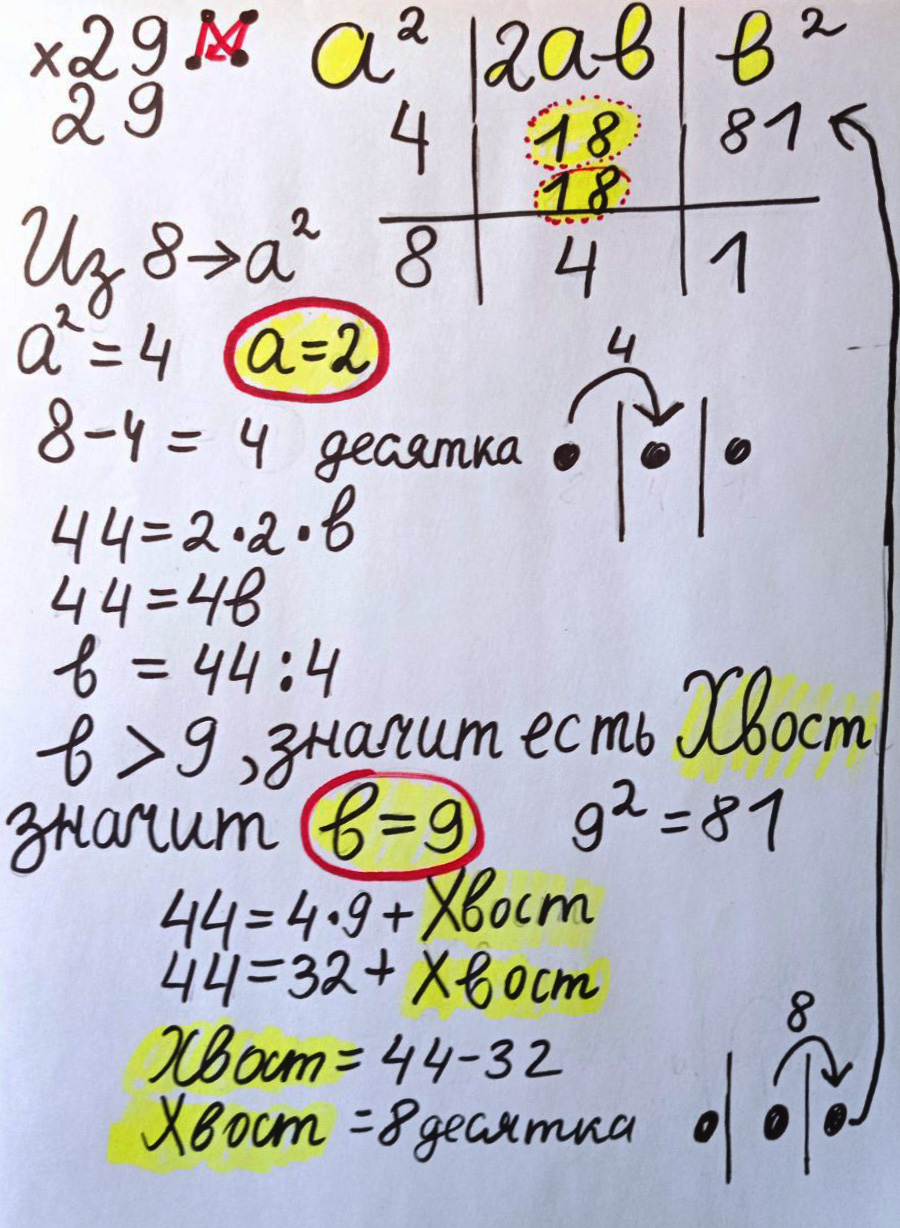 ×29 a² | 2ав | в²
29 4 | 18 | 81
18
Из 8→a² 8 | 4 | 1
a²=4 a=2
4
8-4= 4 десятка
44=2·2·в
44=4в
в = 44:4
в > 9, значит есть Хвост
значит в=9 9²=81
44=4·9+Хвост
44=32+ Хвост
8
Хвост=44-32
Хвост =8 десятка